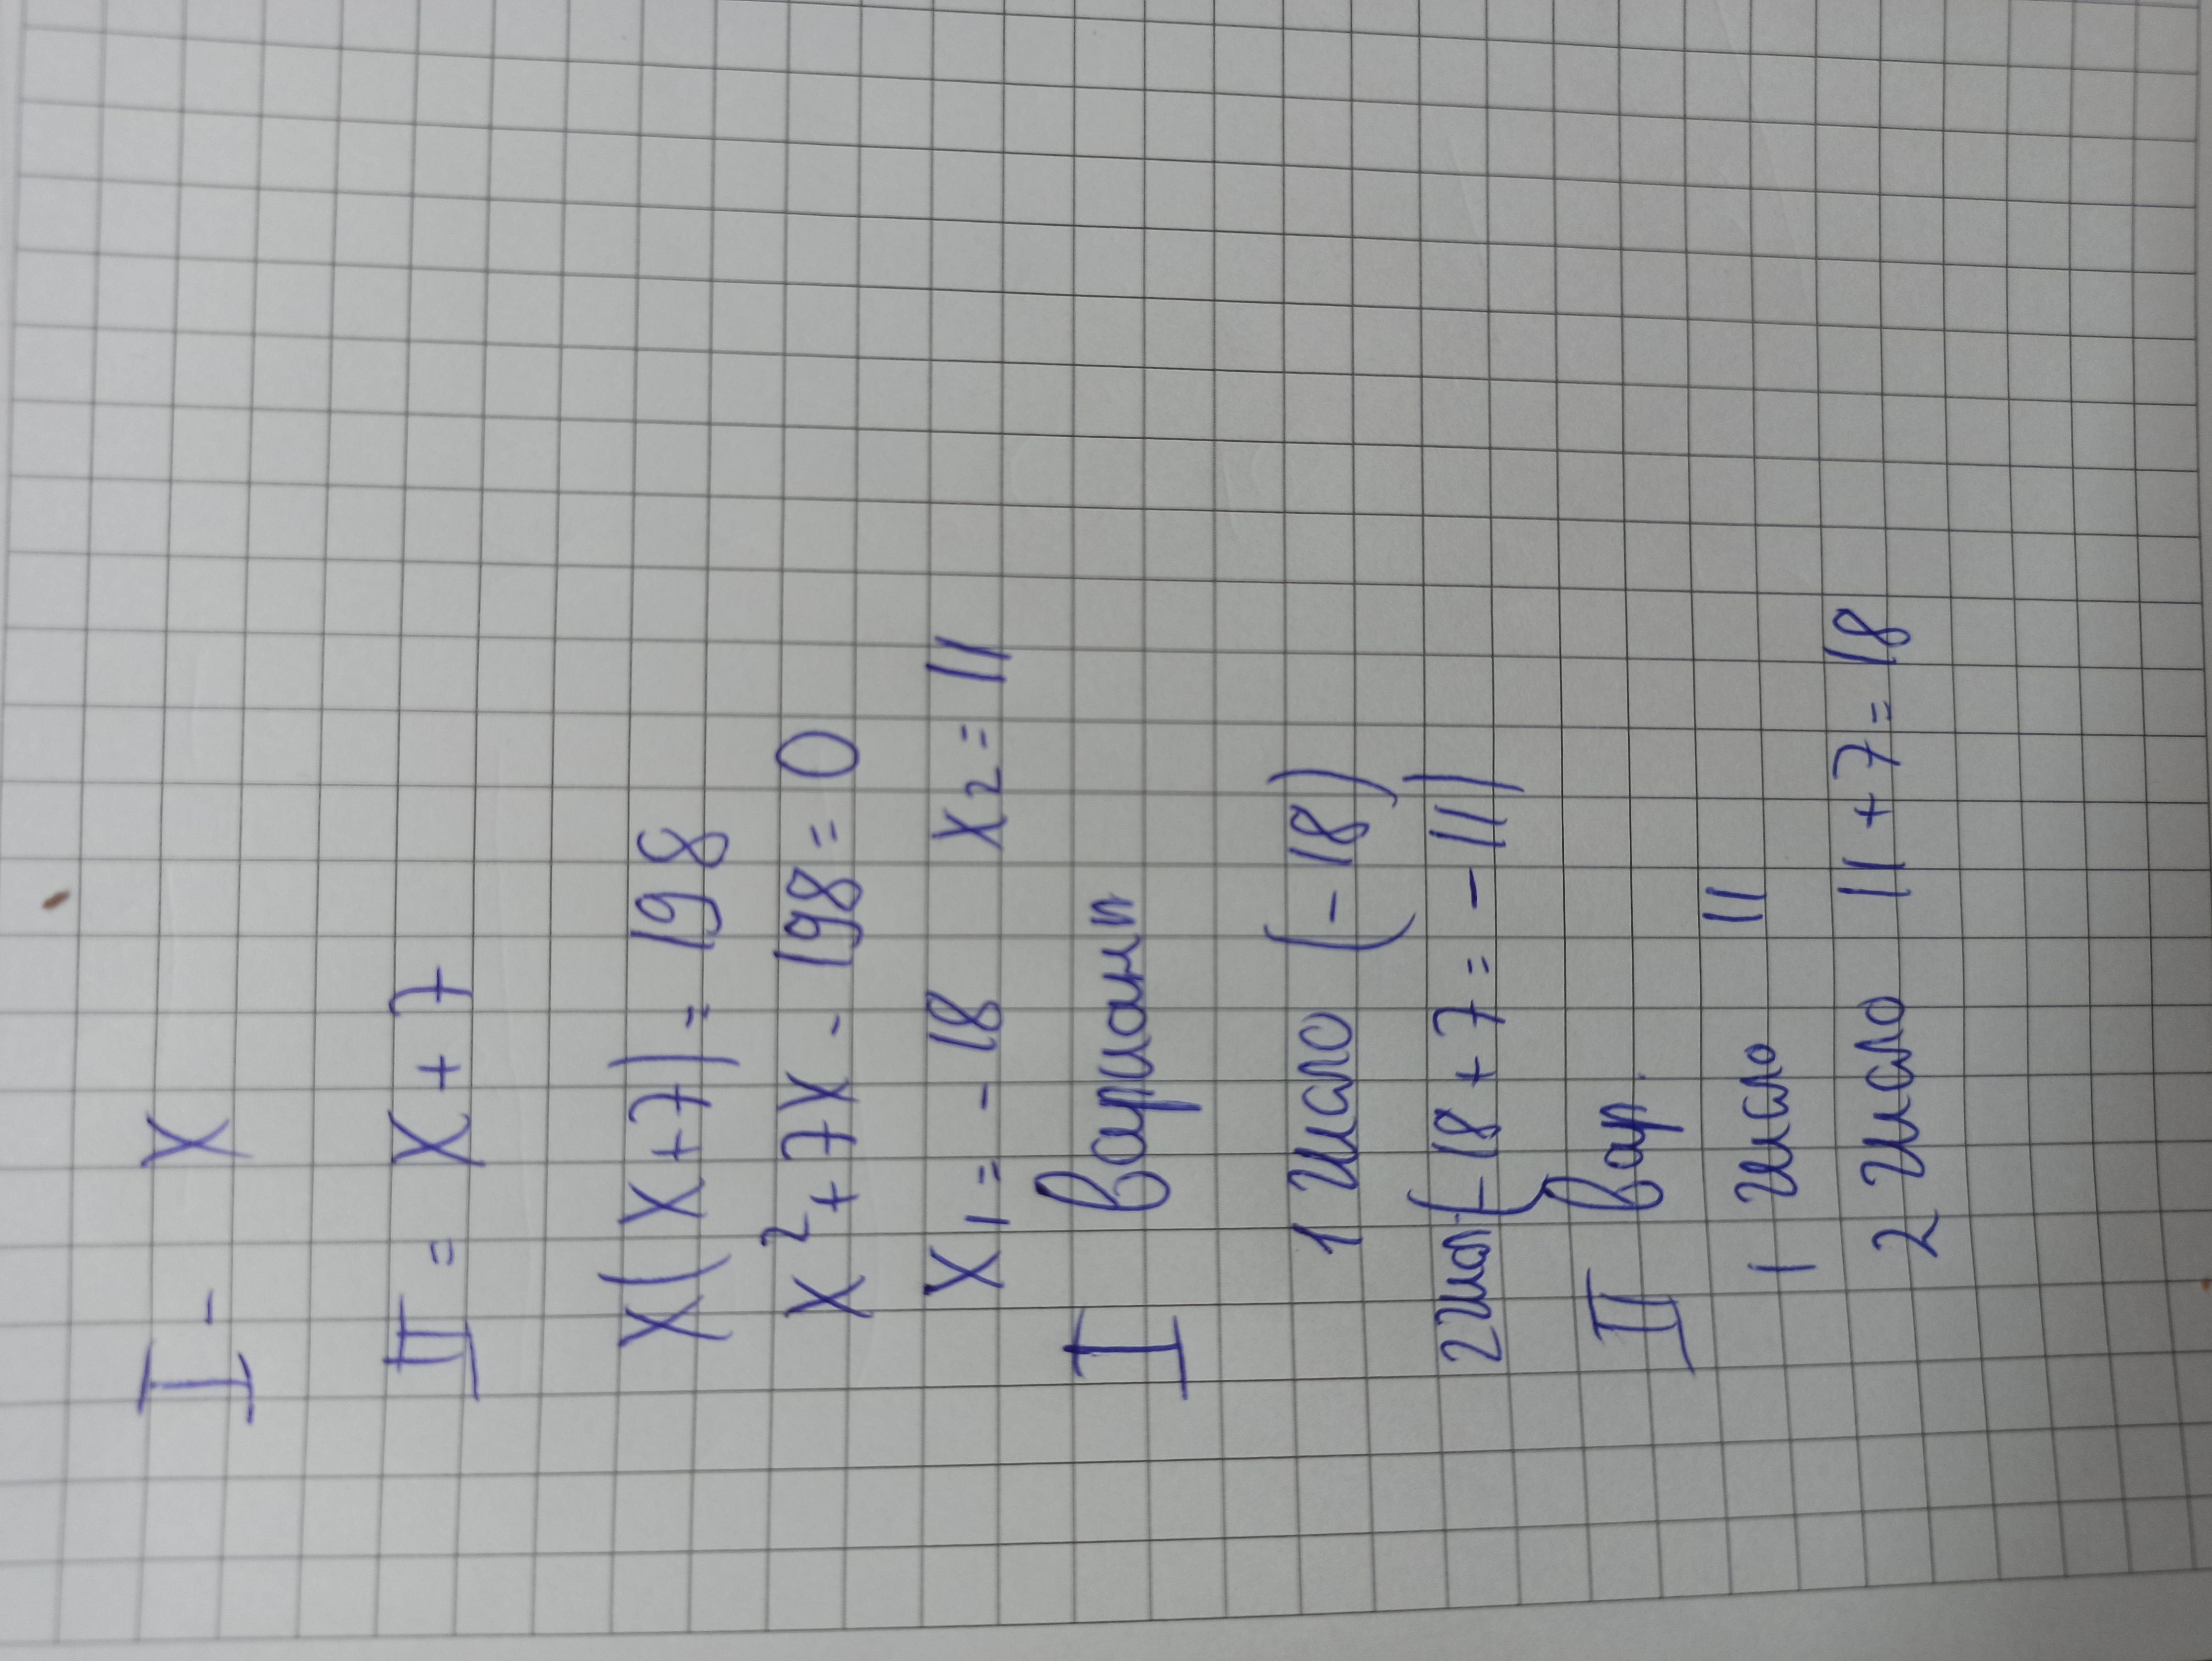 I - X
II = X + 7
X(X+7) = 198
X² + 7X - 198 = 0
X₁ = - 18 X₂ = 11
I вариант
1 число (- 18)
2 число (- 18 + 7 = - 11)
II вар.
1 число 11
2 число 11 + 7 = 18